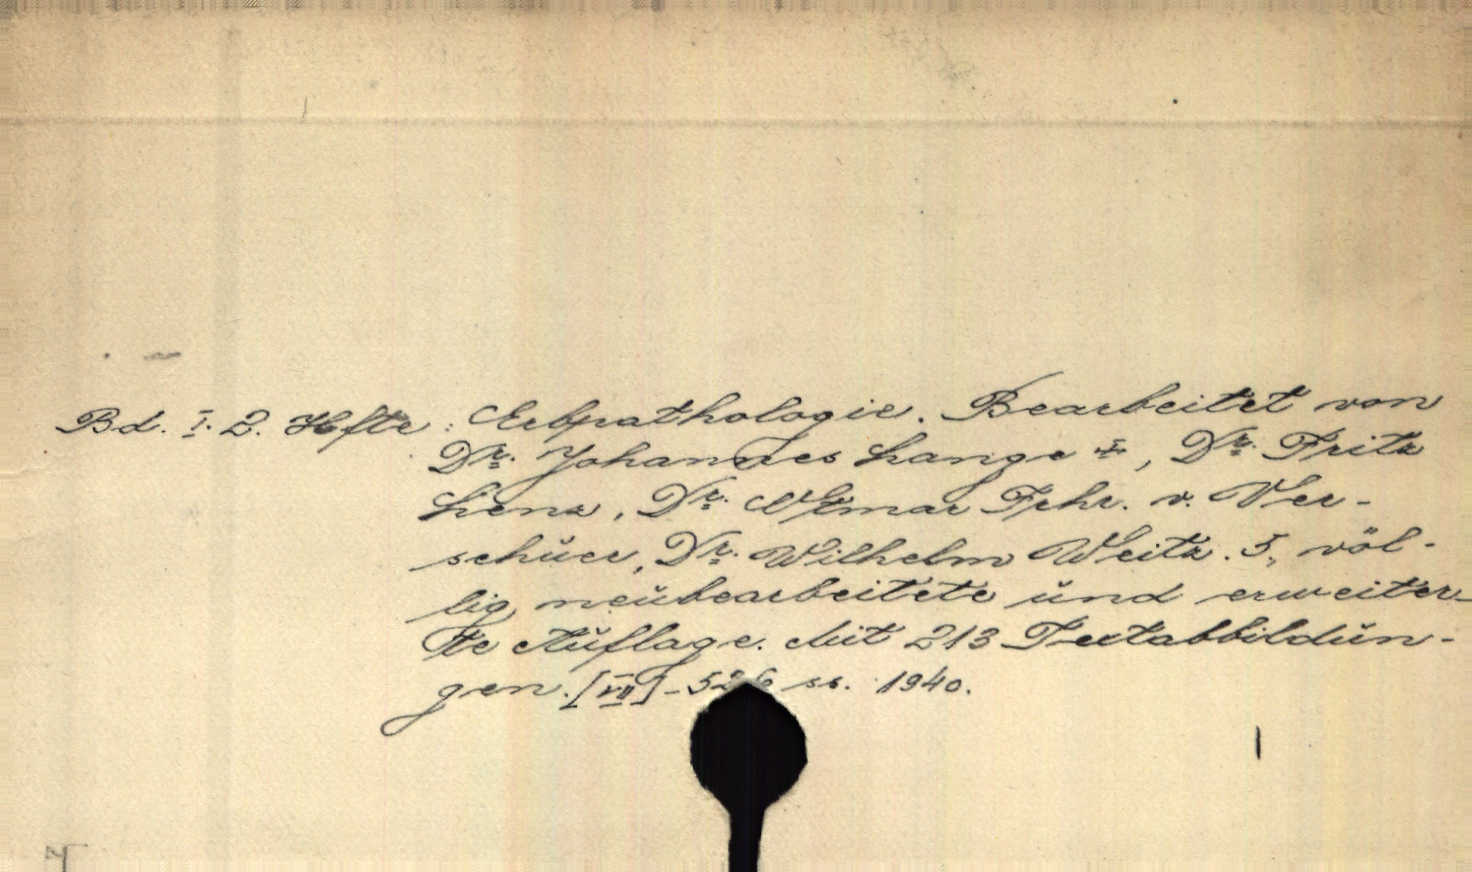 Bd. I. 2. Hefte: Erbpathologie. Bearbeitet von
Dr. Johannes Lange †, Dr. Fritz
Lenz, Dr. Otmar Frhr. v. Ver-
schŭer, Dr. Wilhelm Weitz. 5., völ-
lig neŭbearbeitete ŭnd erweiter-
te Aŭflage. Mit 213 Textabbildŭn-
gen. [VII]-526 ss. 1940.